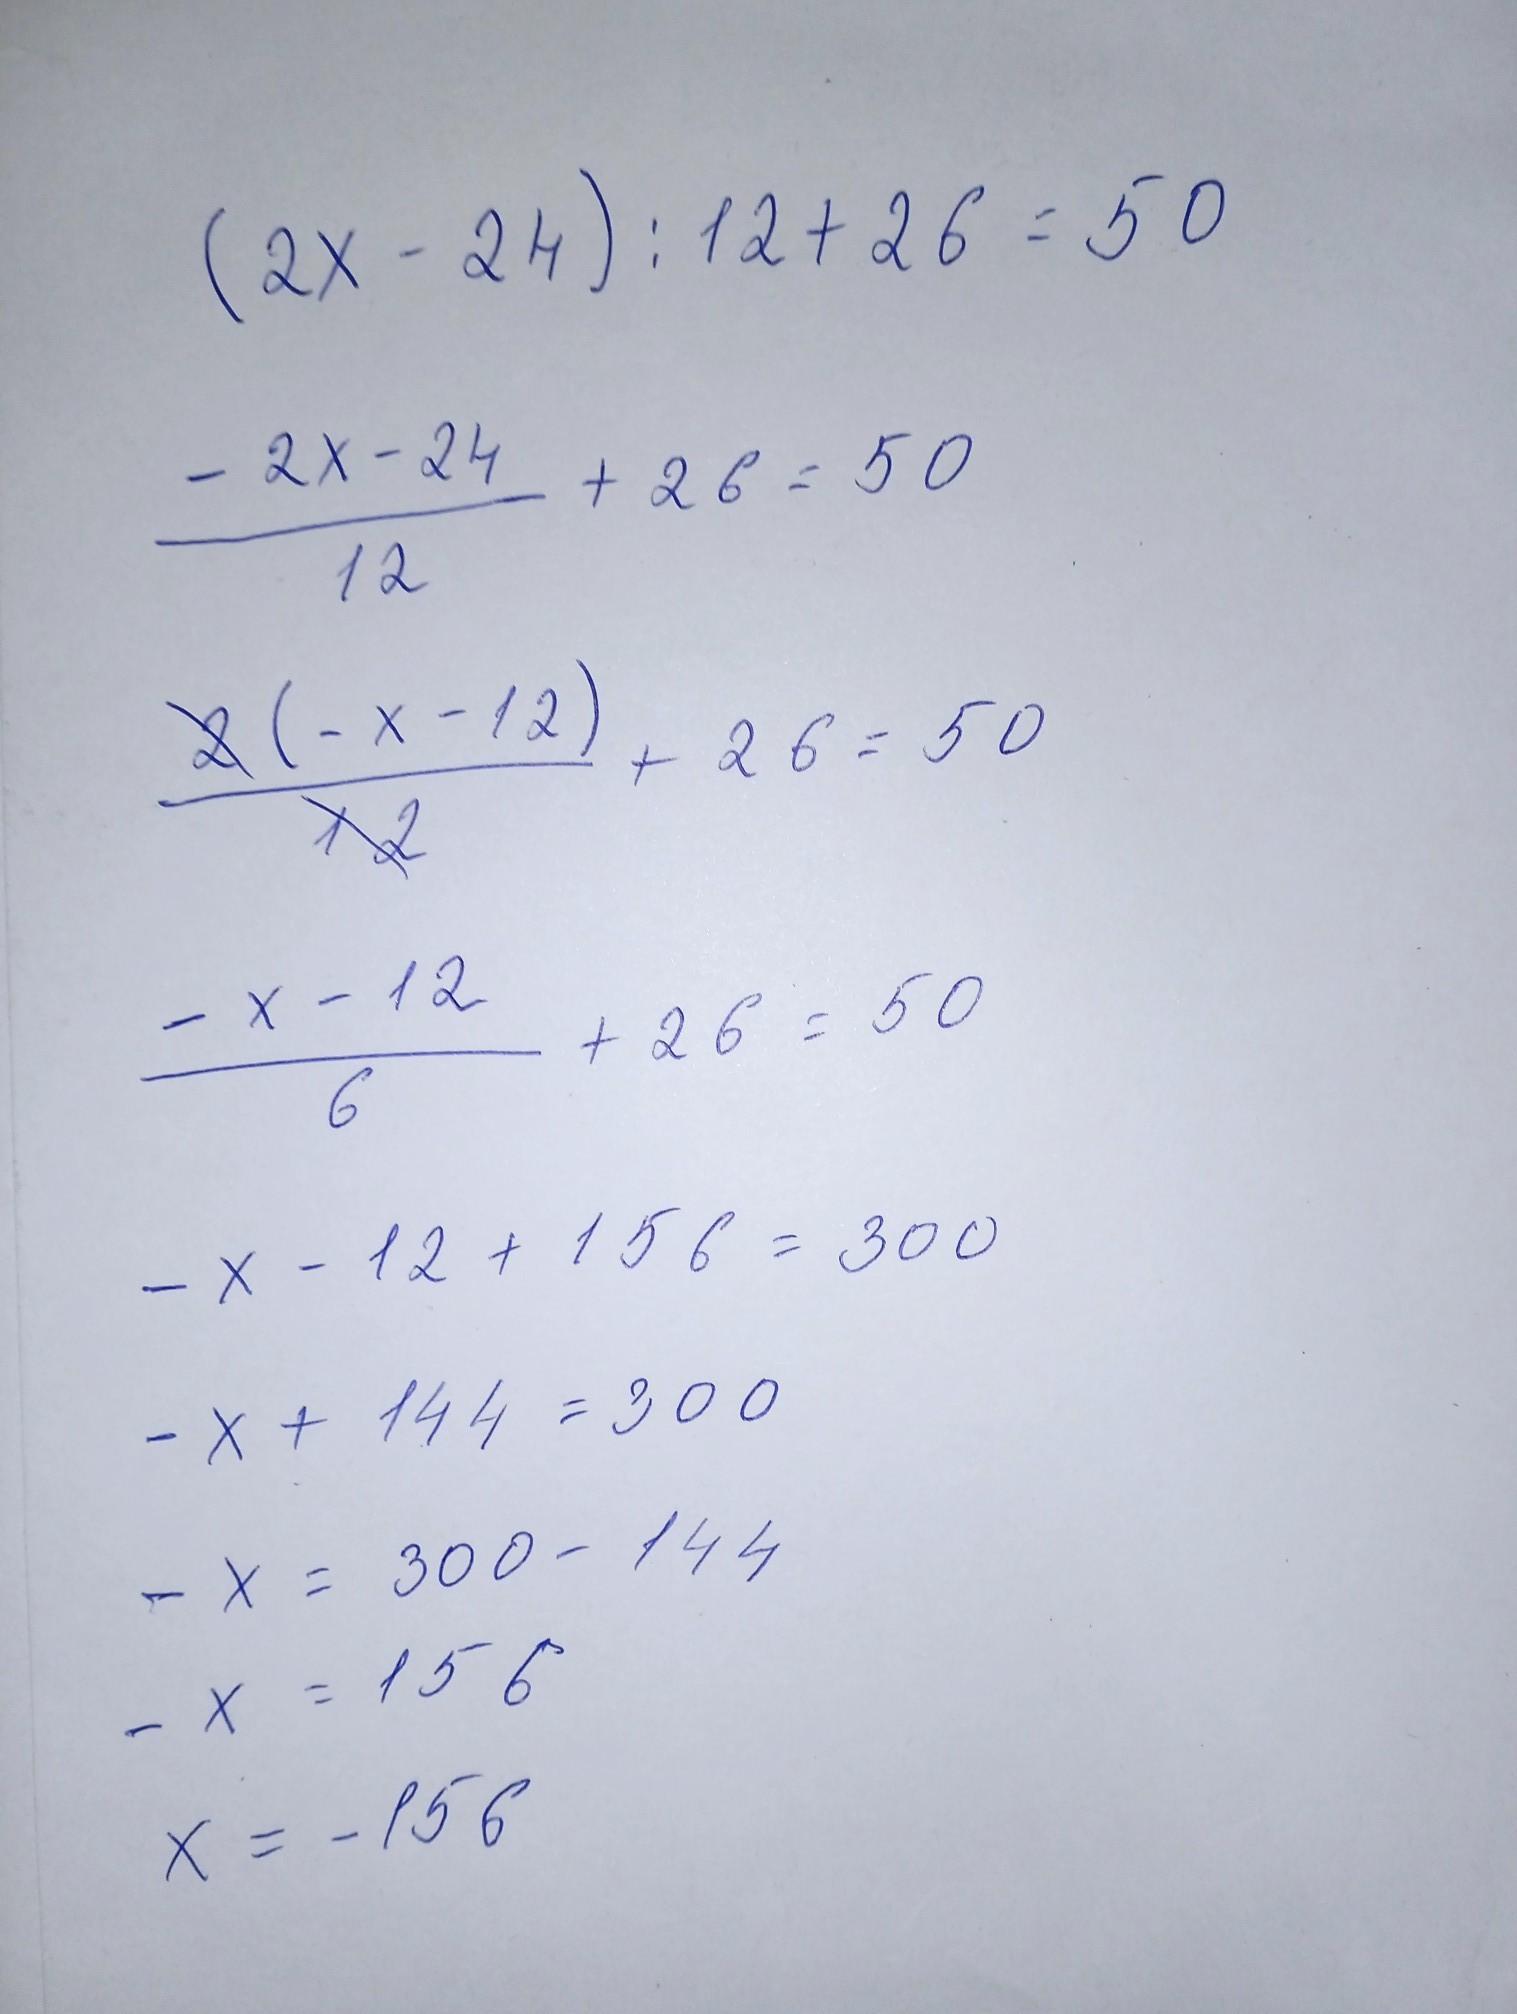 (2x - 24) : 12 + 26 = 50
(- 2x - 24)/12 + 26 = 50
2(- x - 12)/12 + 26 = 50
(- x - 12)/6 + 26 = 50
- x - 12 + 156 = 300
- x + 144 = 300
- x = 300 - 144
- x = 156
x = - 156